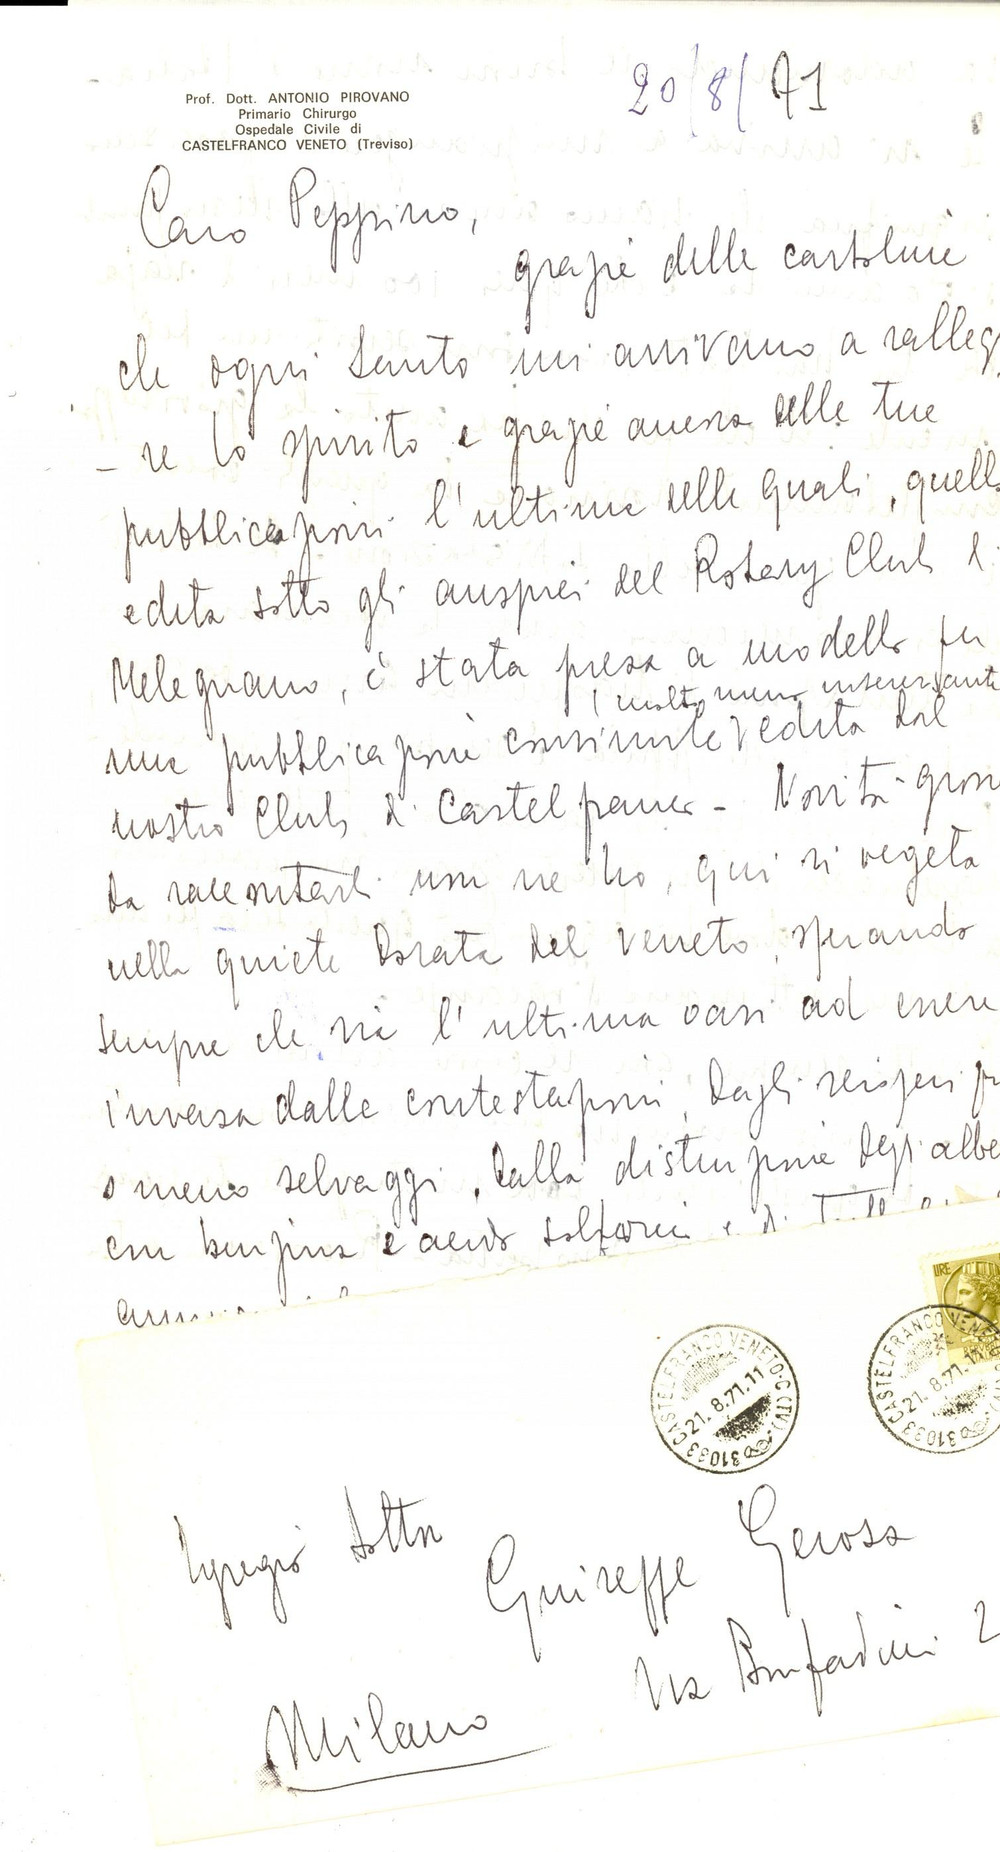 Prof. Dott. ANTONIO PIROVANO
Primario Chirurgo
Ospedale Civile di
CASTELFRANCO VENETO (Treviso)
20/8/71
Caro Peppino,
grazie delle cartoline
che ogni tanto mi arrivano aralleg
- re lo spirito e grazie ancora delle tue
pubblicazioni l'ultima delle quali, quella
edita sotto gli auspici del Rotary Club di
Melegnano, è stata presa a modello per
(molto meno interessante
una pubblicazione consimile edita dal
nostro Club di Castelfranco - Novità grosse
da raccontarti non ne ho, qui si vegeta
nella quiete dorata del Veneto, sperando
sempre che sia l'ultima oasi ad essere
invasa dalle contestazioni, dagli scioperi più
o meno selvaggi, dalla distruzione degli alberi
con benzina e acido solforico e di
LIRE
CASTELFRANCO VENETO-C(TV)
21.8.71.11
31033
CASTELFRANCO VENE
21.8.71.11
31033
Egregio Dottor
Giuseppe Gerosa
Via Bonfadini 2
Milano